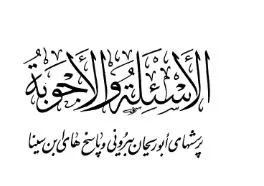 الأَسْئِلَةُ وَالأَجْوِبَةُ
پرسشهای أبوریحان بیرونی و پاسخ های ابن سینا